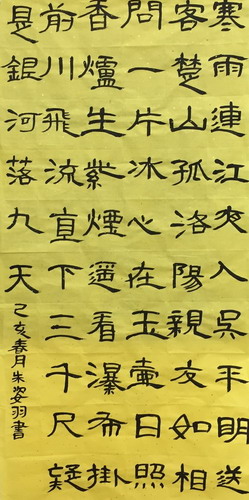 寒雨連江夜入吳平明送
客楚山孤洛陽親友如相
問一片冰心在玉壺日照
香爐生紫煙遥看瀑布掛
前川飛流直下三千尺疑
是銀河落九天
己亥春月朱姿羽書